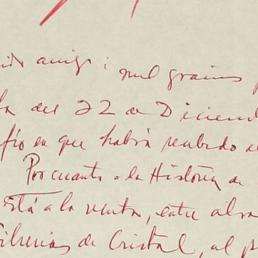 amigo: mil gracias
del 22 de Diciem
en que habrá recibido
Por cuanto a la Historia de
Está a la venta, entre
de Cristal, al p